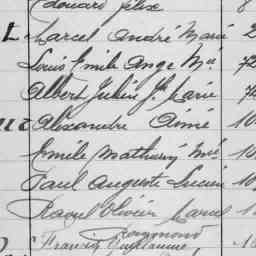 Edouard Félix 8
t Marcel André Marie 2
Louis Emile Ange Mie 72
Albert Julien Jh Marie 7
Alexandre Aimé 10
Emile Mathurin Mie 10
Paul Auguste Lucien 10
Raoul Olivier Marcel 1
Raymond
Francis Guillaume 1